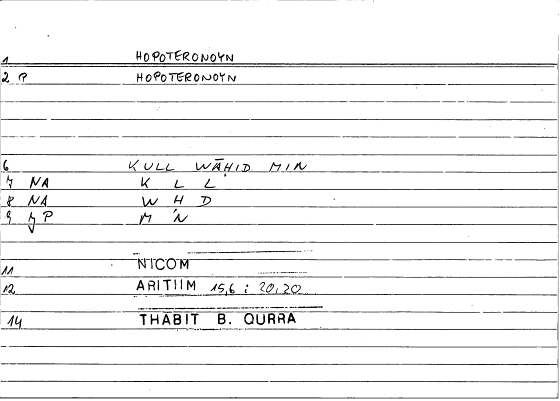 1 HOPOTERONOYN
2 P HOPOTERONOYN
6 KULL WĀHID MIN
7 NA K L L
8 NA W Ḥ D
9 P M N
11 NICOM
12 ARITIIM 15,6 : 20,20
14 THABIT B. QURRA